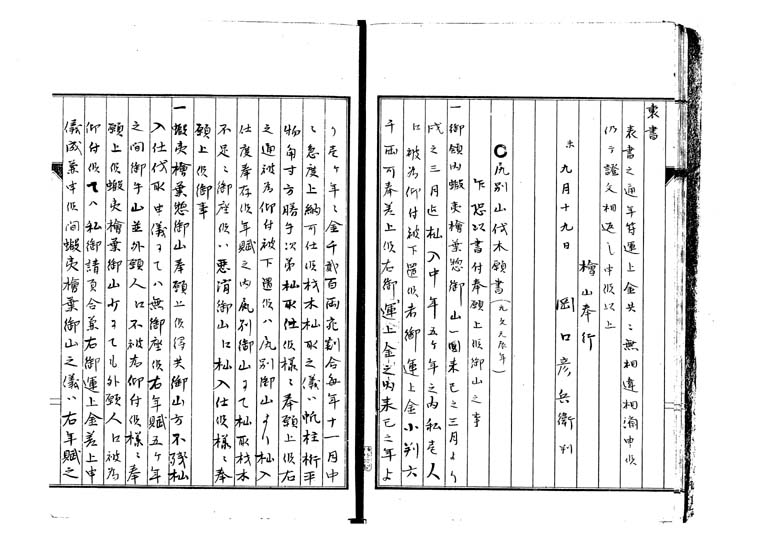 裏書
表書之通年苻運上金共ニ無相違相済申候
仍テ證文相返シ申候以上
檜山奉行
未九月十九日 岡口彦兵衛判
尻別山伐木願書(元文元辰年)
乍恐以書付奉願上候御山之事
一御領内蝦夷檜葉惣御山一圓来巳之三月ゟ
戌之三月迄杣入申年五ケ年之内私壱人
口被為仰付被下置候者御運上金小判六
千両可奉差上候右御運上金之内来巳之年ゟ
壱ケ年ニ金千弐百両充割合毎年十一月中
ニ急度上納可仕候材木杣取之儀ハ帆柱桁平
物角寸方勝手次第杣取仕候様ニ奉願上候右
之通被為仰付被下置候ハ尻別御山ゟ杣入
仕度奉存候年賦之内尻別御山ニて杣取材木
不足ニ御座候ハ悪消御山口杣入仕候様ニ奉
願上候御事
一蝦夷檜葉惣御山奉願上候得共御山方不残杣
入仕伐取申儀ニてハ無御座候右年賦五ケ年
之間御午山並外願人口不被為仰付候様ニ奉
願上候蝦夷檜葉御山少ニても外願人口被為
仰付候てハ私御請負合兼右御運上金差上申
儀成兼申候間蝦夷檜葉御山之儀ハ右年賦之